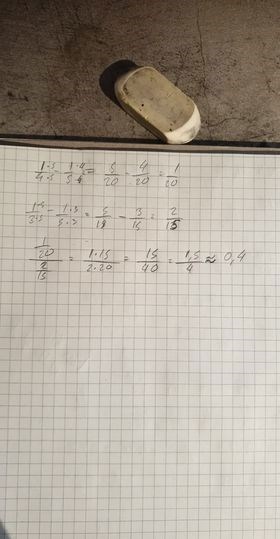 1·5/4·5 - 1·4/5·4 = 5/20 - 4/20 = 1/20
1·5/3·5 - 1·3/5·3 = 5/15 - 3/15 = 2/15
1/20 / 2/15 = 1·15/2·20 = 15/40 = 1,5/4 ≈ 0,4